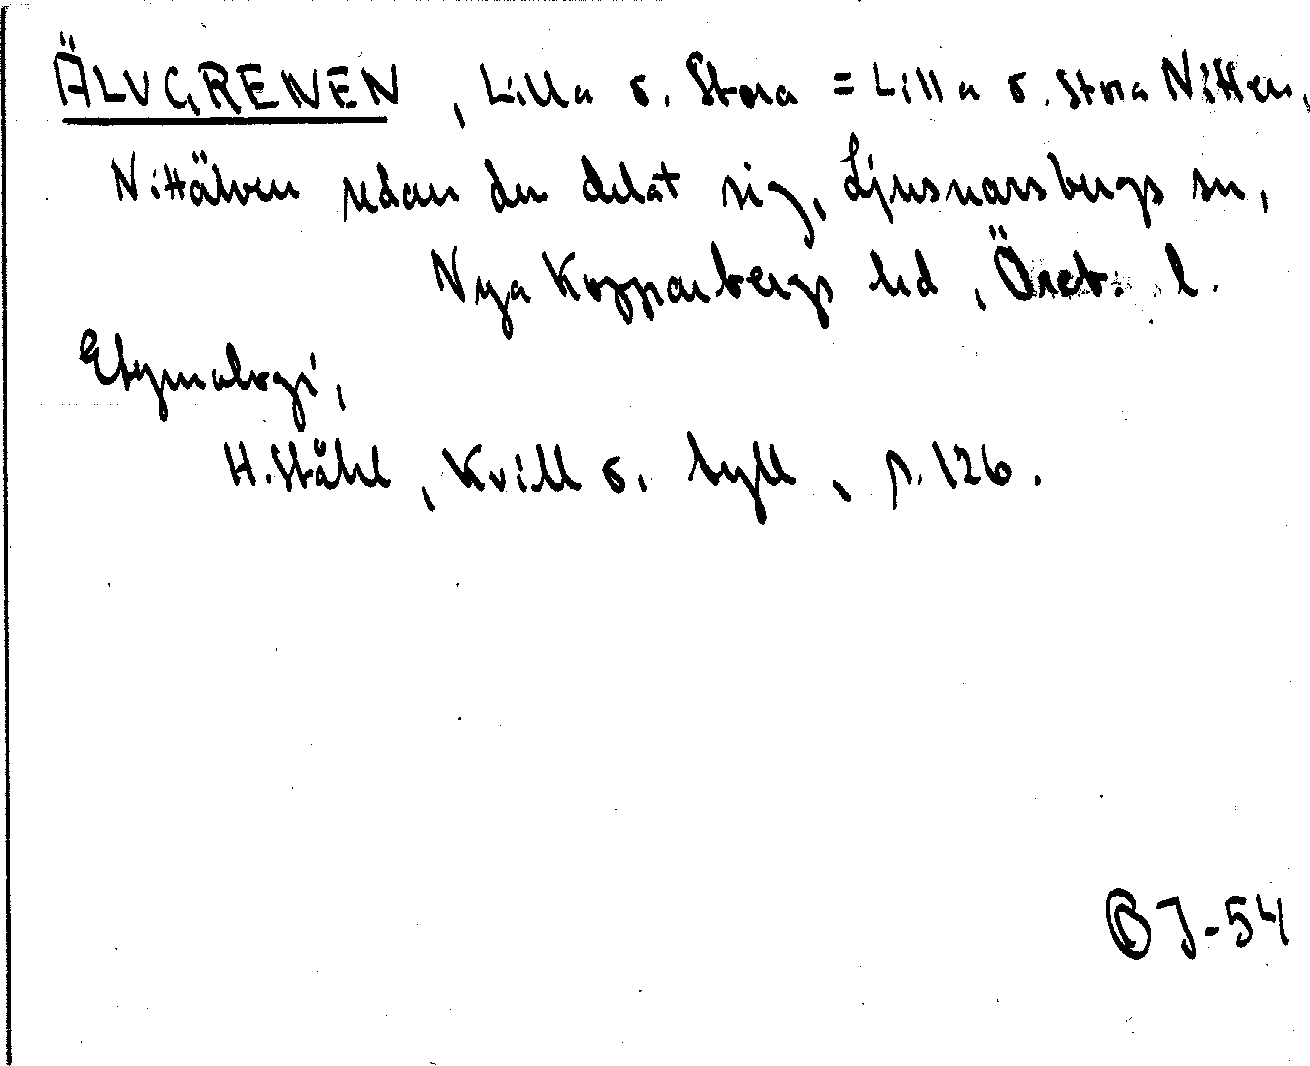 ÄLVGRENEN, Lilla o. Stora = Lilla o. Stora Nitten,
Nittälven sedan den delat sig, Ljusnarsbergs sn,
Nya Kopparbergs hd, Öreb. l.
Etymologi,
H. Ståhl, Kvill o. tyll, p. 126.
OJ-54